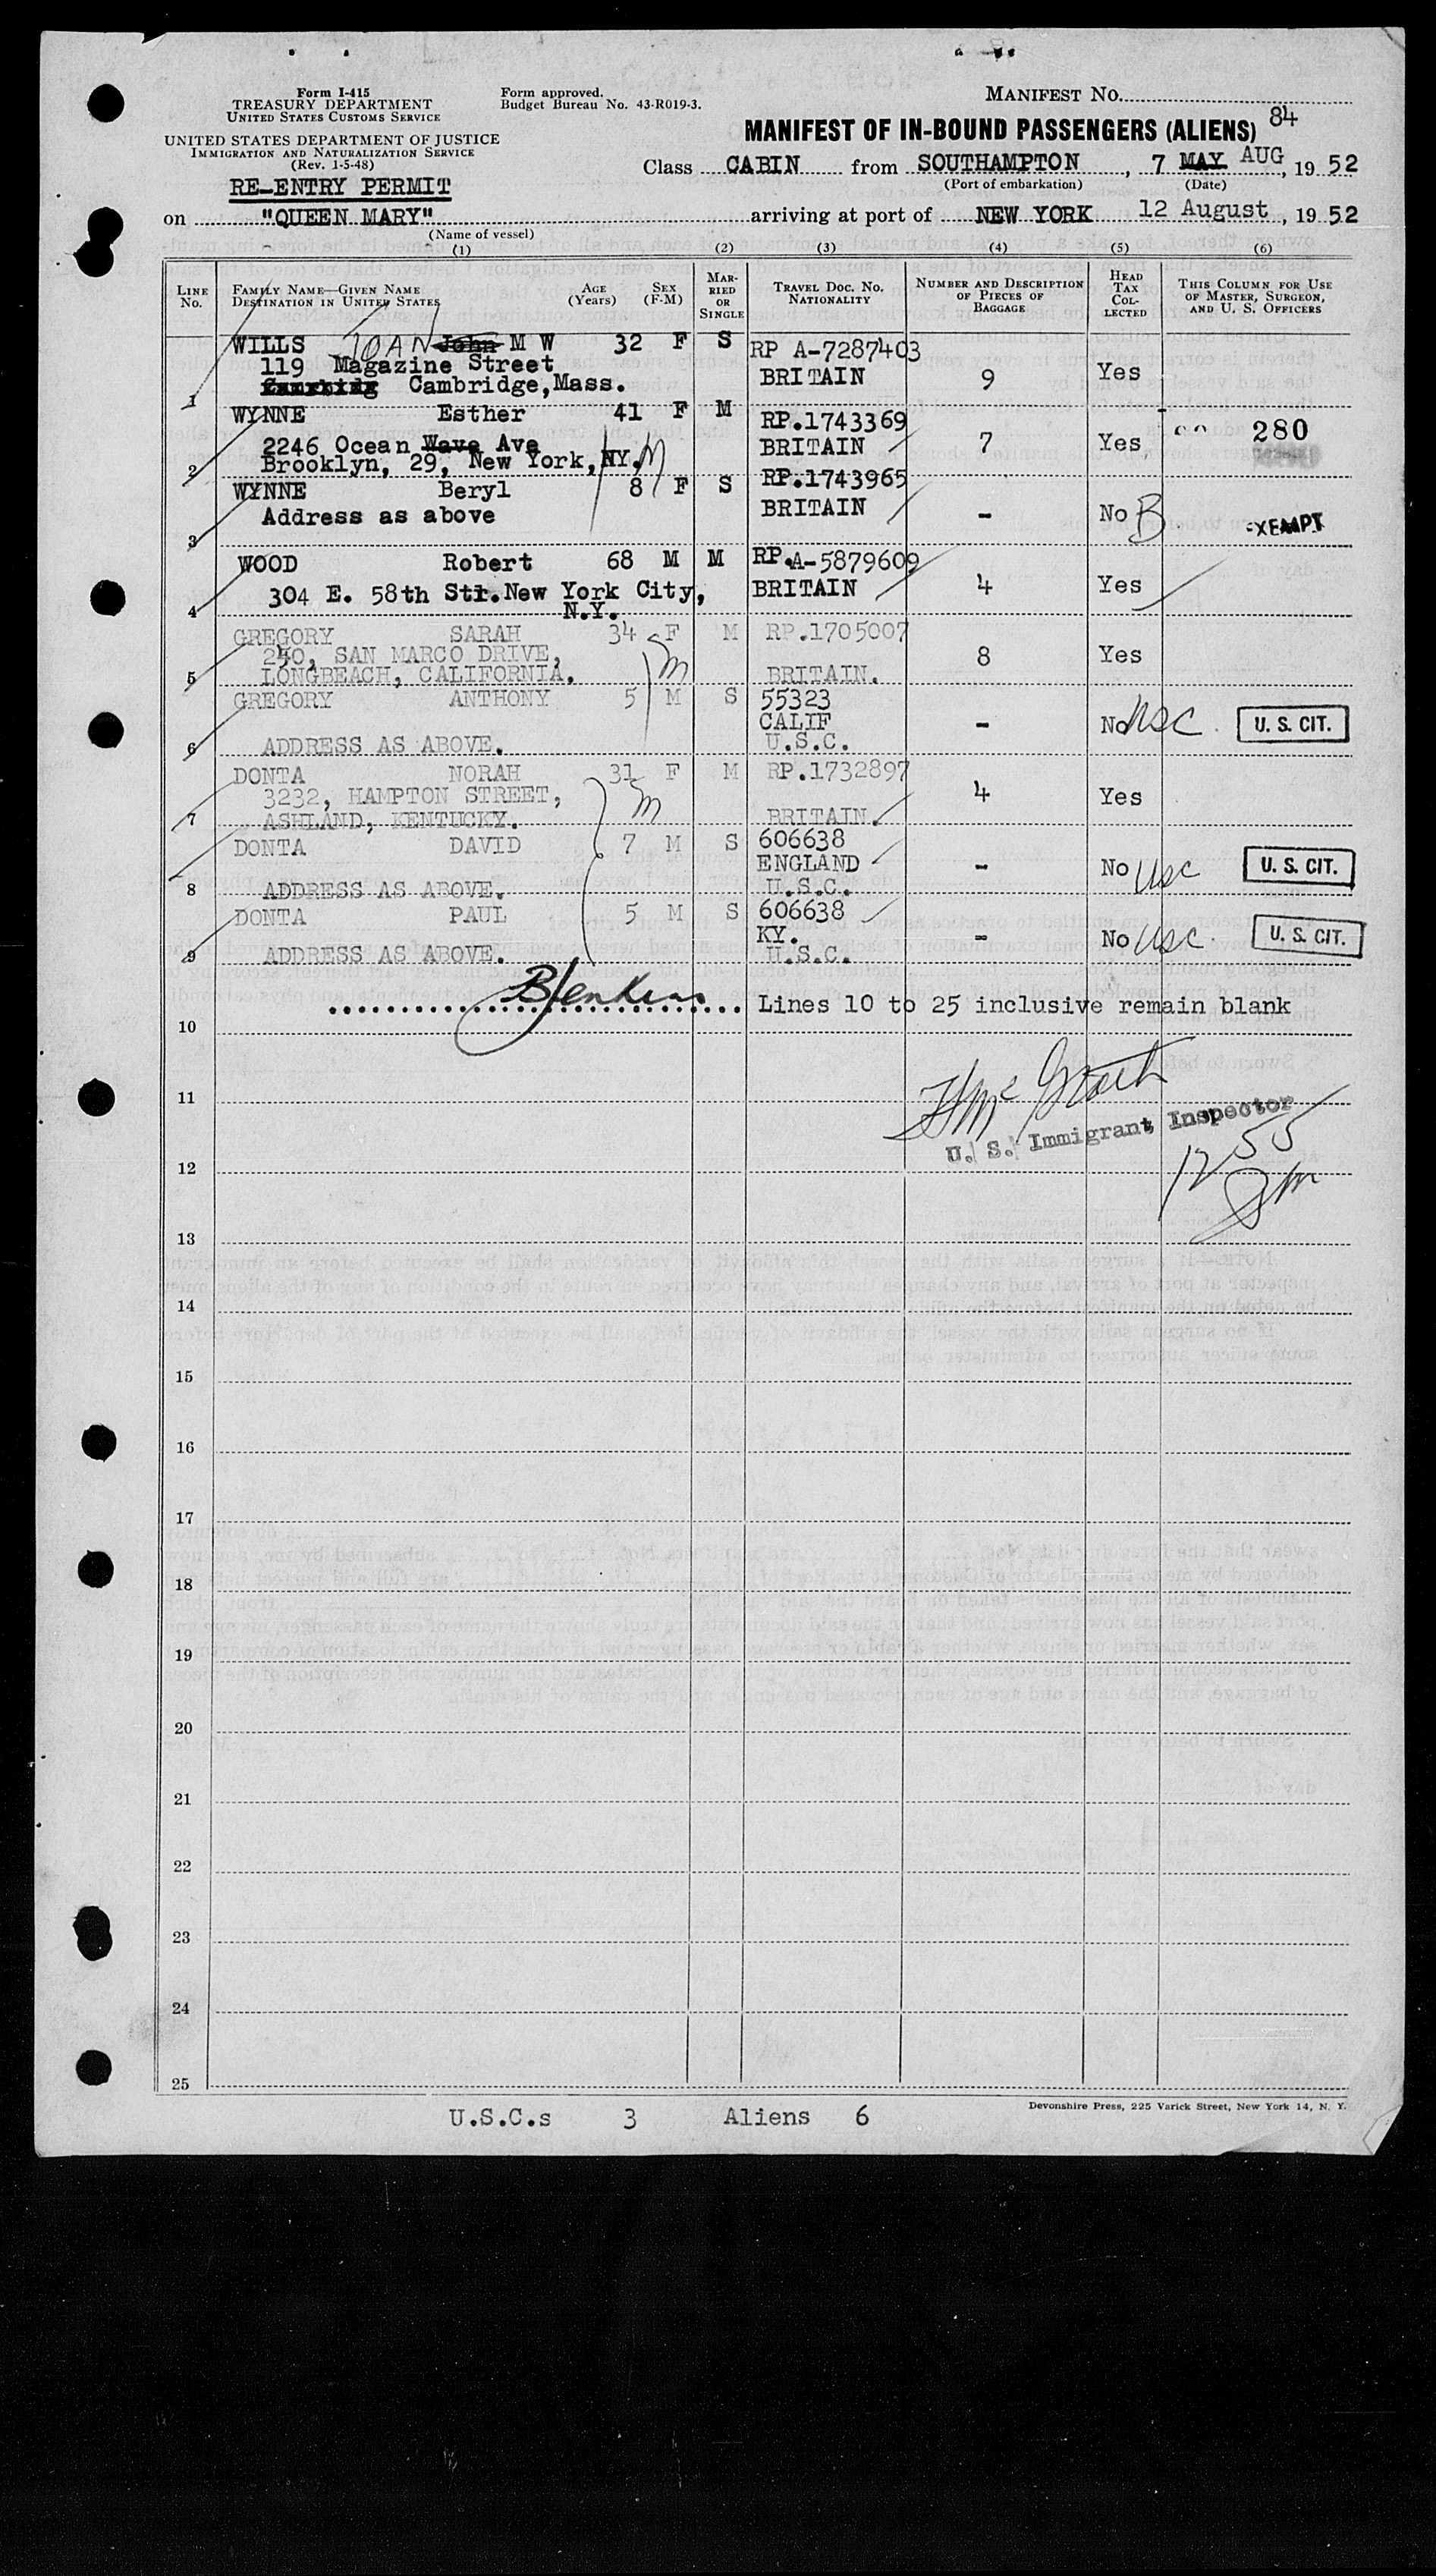 Form I-415
TREASURY DEPARTMENT
UNITED STATES CUSTOMS SERVICE
UNITED STATES DEPARTMENT OF JUSTICE
IMMIGRATION AND NATURALIZATION SERVICE
(Rev. 1-5-48)
Form approved.
Budget Bureau No. 43-R019-3.
MANIFEST No.
84
MANIFEST OF IN-BOUND PASSENGERS (ALIENS)
Class CABIN from SOUTHAMPTON, 7 MAY AUG, 1952
(Port of embarkation) (Date)
RE-ENTRY PERMIT
on "QUEEN MARY" arriving at port of NEW YORK 12 August, 1952
(Name of vessel)
(1) (2) (3) (4) (5) (6)
LINE No.
FAMILY NAME—GIVEN NAME
DESTINATION IN UNITED STATES
AGE (Years)
SEX (F-M)
MARRIED OR SINGLE
TRAVEL DOC. NO. NATIONALITY
NUMBER AND DESCRIPTION OF PIECES OF BAGGAGE
HEAD TAX COLLECTED
THIS COLUMN FOR USE OF MASTER, SURGEON, AND U. S. OFFICERS
WILLS JOAN John M W 32 F S RP A-7287403
119 Magazine Street
Cambridge,Mass. BRITAIN 9 Yes
1
WYNNE Esther 41 F M RP.1743369
2246 Ocean Wave Ave BRITAIN 7 Yes 280
Brooklyn, 29, New York, NY. M
2
WYNNE Beryl 8 F S RP.1743965
Address as above BRITAIN - No B EXEMPT
3
WOOD Robert 68 M M RP.A-5879609
304 E. 58th Str.New York City, BRITAIN 4 Yes
N.Y.
4
GREGORY SARAH 34 F M RP.1705007
240, SAN MARCO DRIVE, m 8 Yes
LONGBEACH, CALIFORNIA. BRITAIN.
5
GREGORY ANTHONY 5 M S 55323
CALIF - No usc U. S. CIT.
ADDRESS AS ABOVE. U.S.C.
6
DONTA NORAH 31 F M RP.1732897
3232, HAMPTON STREET, m 4 Yes
ASHLAND, KENTUCKY. BRITAIN.
7
DONTA DAVID 7 M S 606638
ENGLAND - No usc U. S. CIT.
ADDRESS AS ABOVE. U.S.C.
8
DONTA PAUL 5 M S 606638
KY. - No usc U. S. CIT.
ADDRESS AS ABOVE. U.S.C.
9
BJenkins Lines 10 to 25 inclusive remain blank
10
HMcGrath
11
U. S. Immigrant Inspector
12 55
12
13
14
15
16
17
18
19
20
21
22
23
24
25
U.S.C.s 3 Aliens 6
Devonshire Press, 225 Varick Street, New York 14, N. Y.